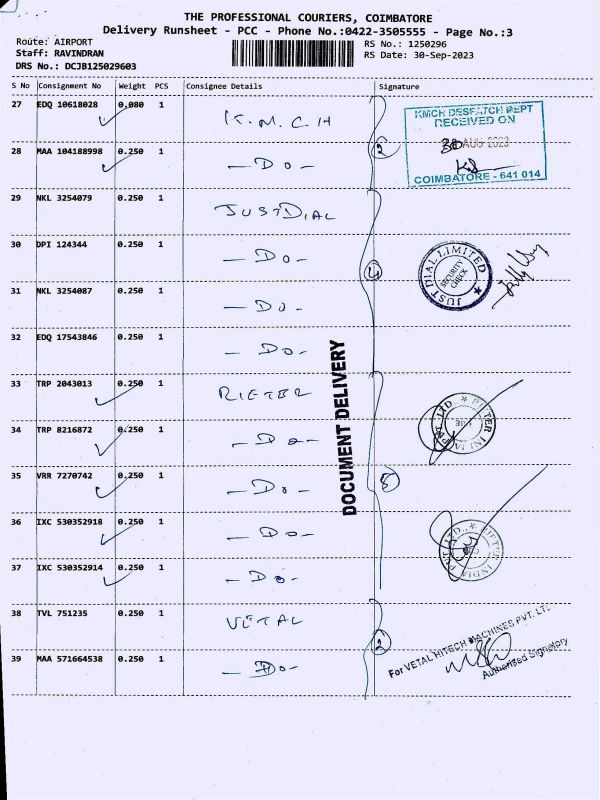 THE PROFESSIONAL COURIERS, COIMBATORE
Delivery Runsheet - PCC - Phone No.:0422-3505555 - Page No.:3
Route: AIRPORT
RS No.: 1250296
Staff: RAVINDRAN
RS Date: 30-Sep-2023
DRS No.: DCJB125029603
S No Consignment No Weight PCS Consignee Details Signature
27 EDQ 10618028 0.080 1 K.M.C.H
KMCH DESPATCH DEPT
RECEIVED ON
30 AUG 2023
COIMBATORE - 641 014
28 MAA 104188998 0.250 1 - Do - 2
29 NKL 3254079 0.250 1 JUSTDIAL
30 DPI 124344 0.250 1 - Do - 4
JUST DIAL LIMITED
SECURITY CHECK
31 NKL 3254087 0.250 1 - Do -
32 EDQ 17543846 0.250 1 - Do -
DOCUMENT DELIVERY
33 TRP 2043013 0.250 1 RIETER
34 TRP 8216872 0.250 1 - Do -
35 VRR 7270742 0.250 1 - Do - 5
36 IXC 530352918 0.250 1 - Do -
RIETER INDIA PVT. LTD.
37 IXC 530352914 0.250 1 - Do -
38 TVL 751235 0.250 1 VETAL 2
For VETAL HITECH MACHINES PVT. LTD.
Authorised Signatory
39 MAA 571664538 0.250 1 - Do -